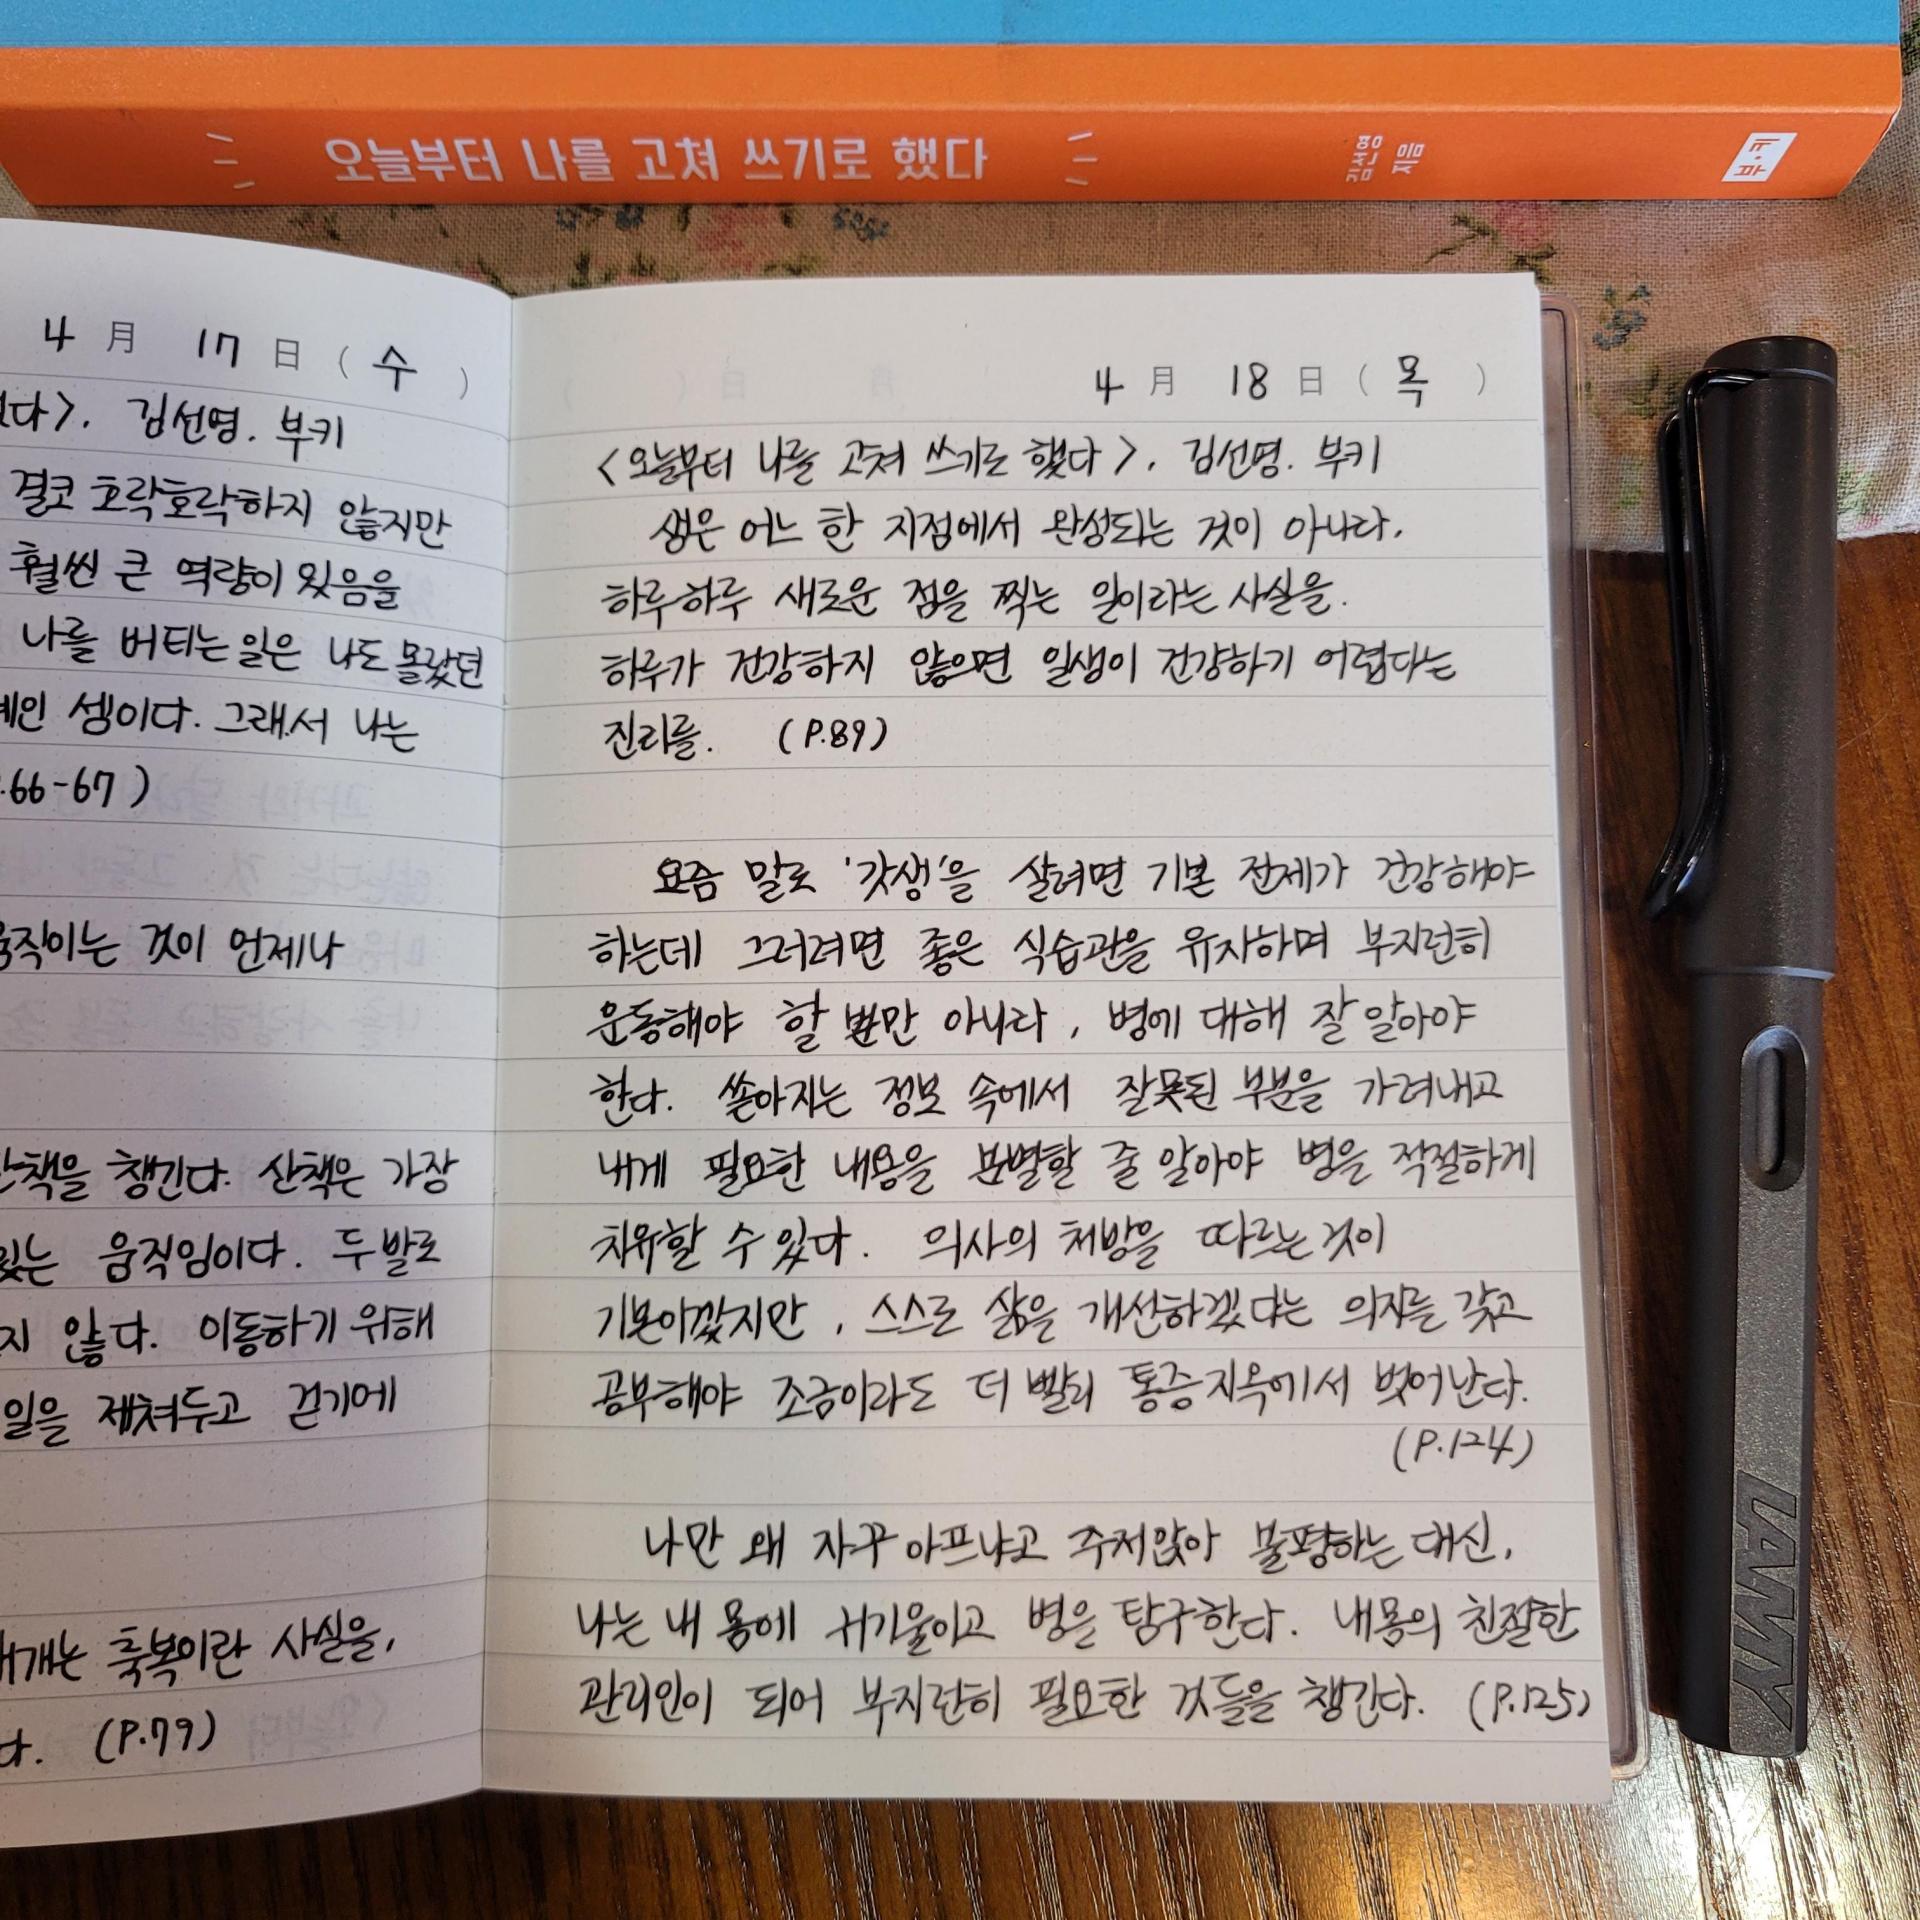 오늘부터 나를 고쳐 쓰기로 했다
김선영
지음
부·키
4 月 17 日 ( 수 )
다>. 김선영. 부키
결코 호락호락하지 않지만
훨씬 큰 역량이 있음을
나를 버티는 일은 나도 몰랐던
셈이다. 그래서 나는
.66-67)
움직이는 것이 언제나
산책을 챙긴다. 산책은 가장
있는 움직임이다. 두 발로
지 않다. 이동하기 위해
일을 제쳐두고 걷기에
축복이란 사실을,
다. (P.79)
4 月 18 日 ( 목 )
<오늘부터 나를 고쳐 쓰기로 했다>. 김선영. 부키
생은 어느 한 지점에서 완성되는 것이 아니라,
하루하루 새로운 점을 찍는 일이라는 사실을.
하루가 건강하지 않으면 일생이 건강하기 어렵다는
진리를. (P.89)
요즘 말로 '갓생'을 살려면 기본 전제가 건강해야
하는데 그러려면 좋은 식습관을 유지하며 부지런히
운동해야 할 뿐만 아니라, 병에 대해 잘 알아야
한다. 쏟아지는 정보 속에서 잘못된 부분을 가려내고
내게 필요한 내용을 분별할 줄 알아야 병을 적절하게
치유할 수 있다. 의사의 처방을 따르는 것이
기본이겠지만, 스스로 삶을 개선하겠다는 의지를 갖고
공부해야 조금이라도 더 빨리 통증지옥에서 벗어난다.
(P.124)
나만 왜 자꾸 아프냐고 주저앉아 불평하는 대신,
나는 내 몸에 귀기울이고 병을 탐구한다. 내몸의 친절한
관리인이 되어 부지런히 필요한 것들을 챙긴다. (P.125)
LAMY